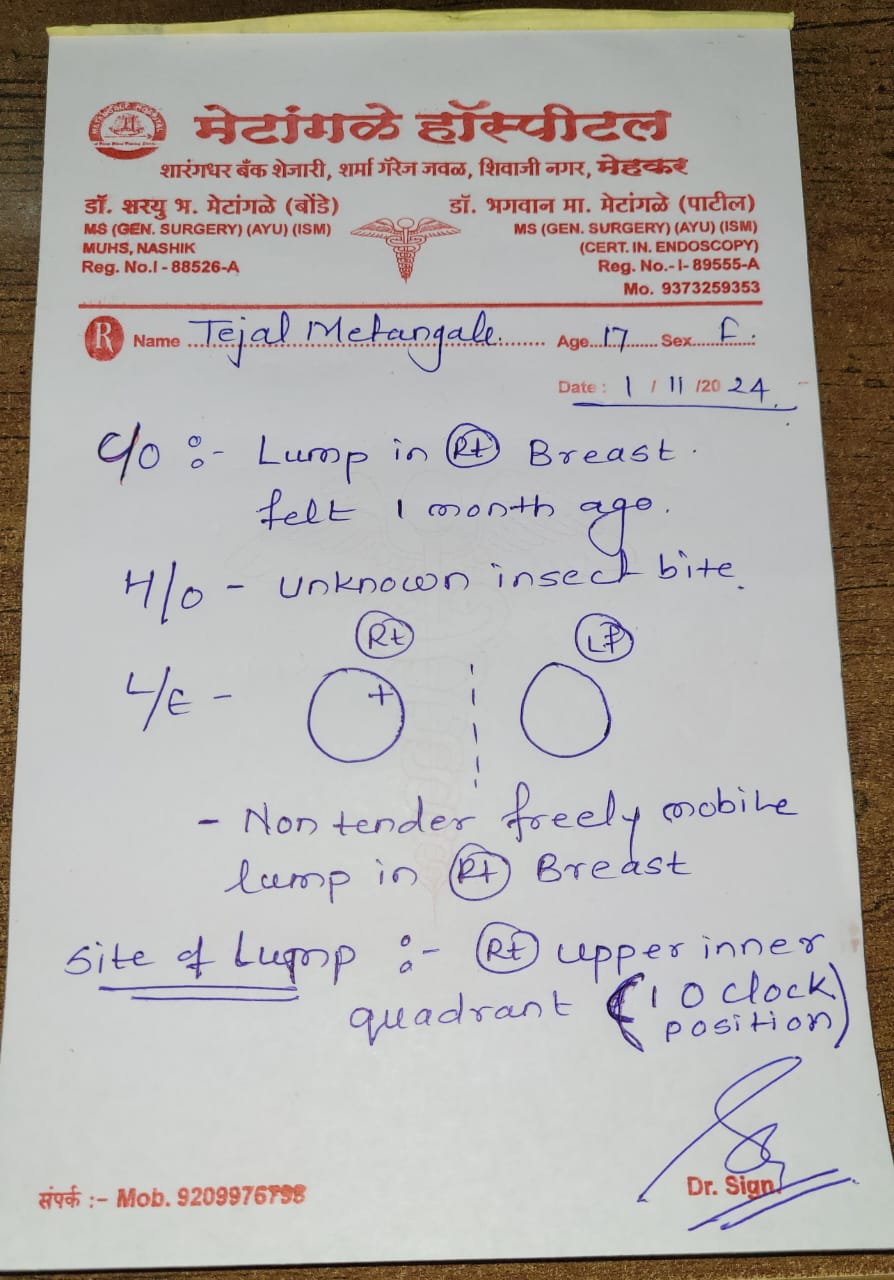 मेटांगळे हॉस्पीटल
शारंगधर बँक शेजारी, शर्मा गॅरेज जवळ, शिवाजी नगर, मेहकर
डॉ. शरयु भ. मेटांगळे (बोंडे)
MS (GEN. SURGERY) (AYU) (ISM)
MUHS, NASHIK
Reg. No.I - 88526-A
डॉ. भगवान मा. मेटांगळे (पाटील)
MS (GEN. SURGERY) (AYU) (ISM)
(CERT. IN. ENDOSCOPY)
Reg. No.- I- 89555-A
Mo. 9373259353
R Name Tejal Metangale. Age 17 Sex F.
Date : 1 / 11 /20 24
C/O :- Lump in Rt Breast.
felt 1 month ago.
H/O - unknown insect bite.
Rt Lt
L/E - +
- Non tender freely mobile
lump in Rt Breast
Site of Lump :- Rt upper inner
quadrant (1 O clock
position)
Dr. Sign.
संपर्क :- Mob. 9209976798